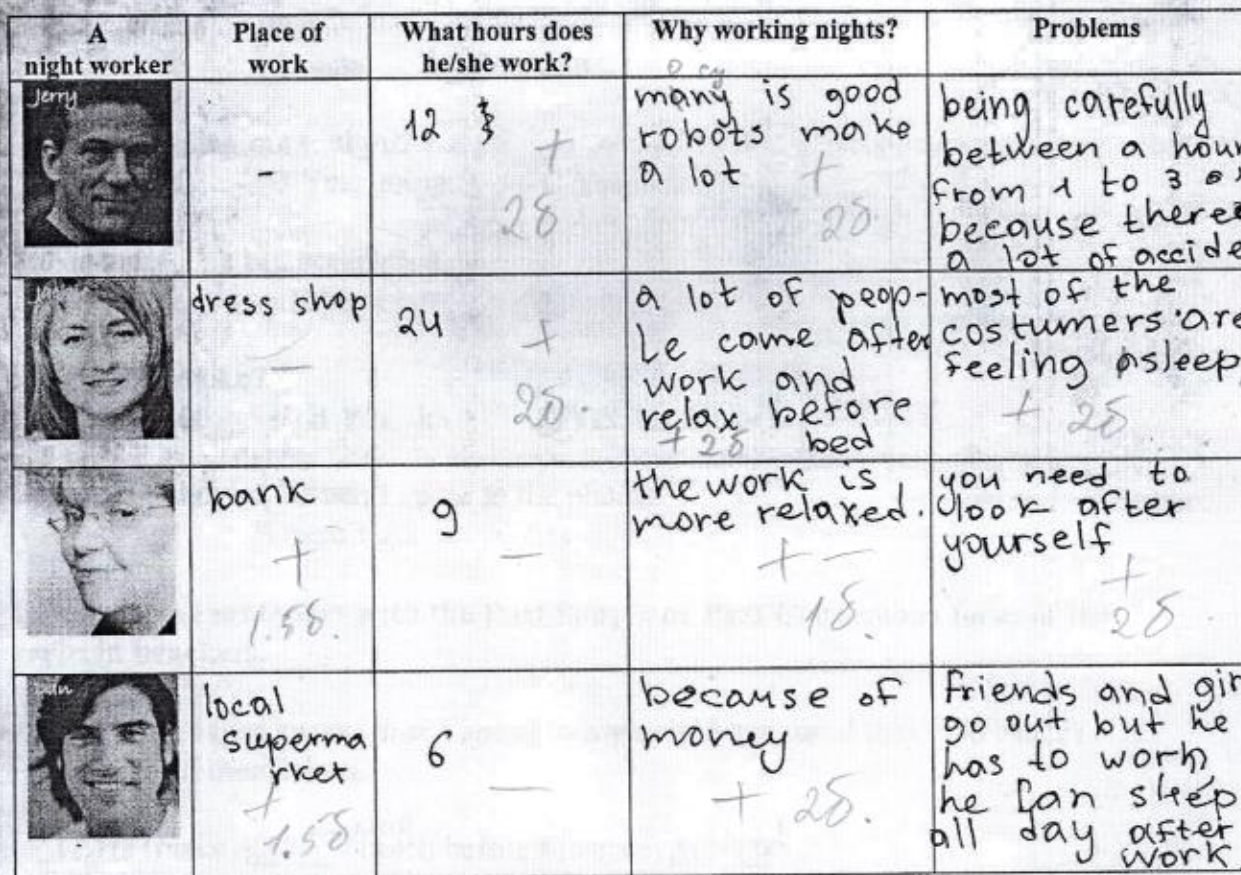 A
night worker
Place of
work
What hours does
he/she work?
Why working nights?
Problems
Jerry
-
12
+
2б
many is good
robots make
a lot
+
2б
being carefully
between a hour
from 1 to 3
because there
a lot of accide
dress shop
—
24
+
2б.
a lot of peop-
le came after
work and
relax before
bed
+ 2б
most of the
costumers are
feeling asleep
+ 2б
bank
+
1.5б.
9
—
the work is
more relaxed.
+
1б.
you need to
look after
yourself
+
2б
local
superma
rket
+
1.5б
6
—
because of
money
+ 2б.
friends and gir
go out but he
has to work
he can sleep
all day after
work